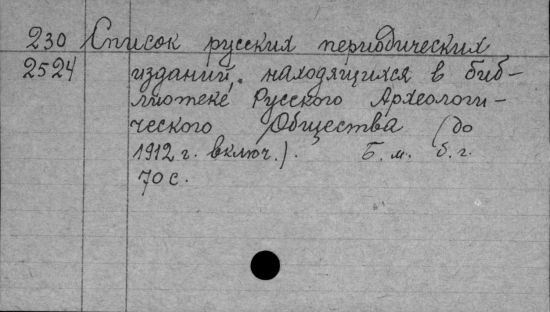 230 Список русских периодических
2524 изданий, находящихся в биб-
лиотеке Русского Археологи-
ческого Общества (до
1912 г. включ.). Б. м. б. г.
70 с.